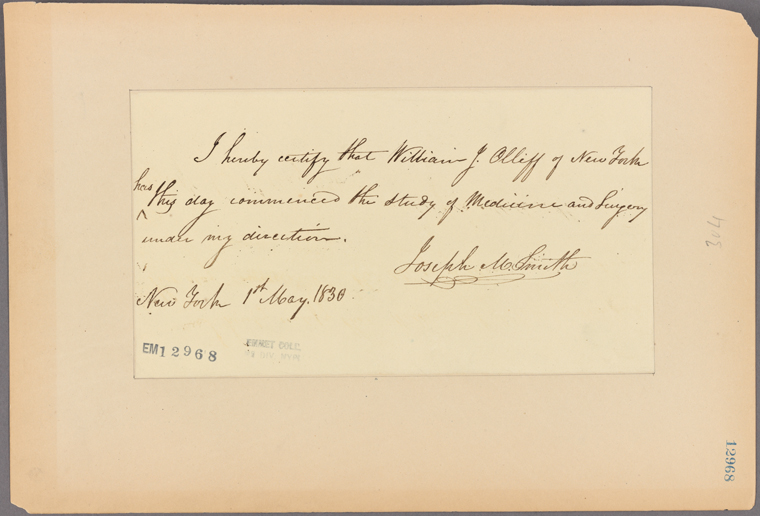 I hereby certify that William J. Olliff of New York
has
this day commenced the study of Medicine and Surgery
under my direction.
Joseph M. Smith
New York 1st May, 1830
EM12968
EMMET COLL.
304
12968